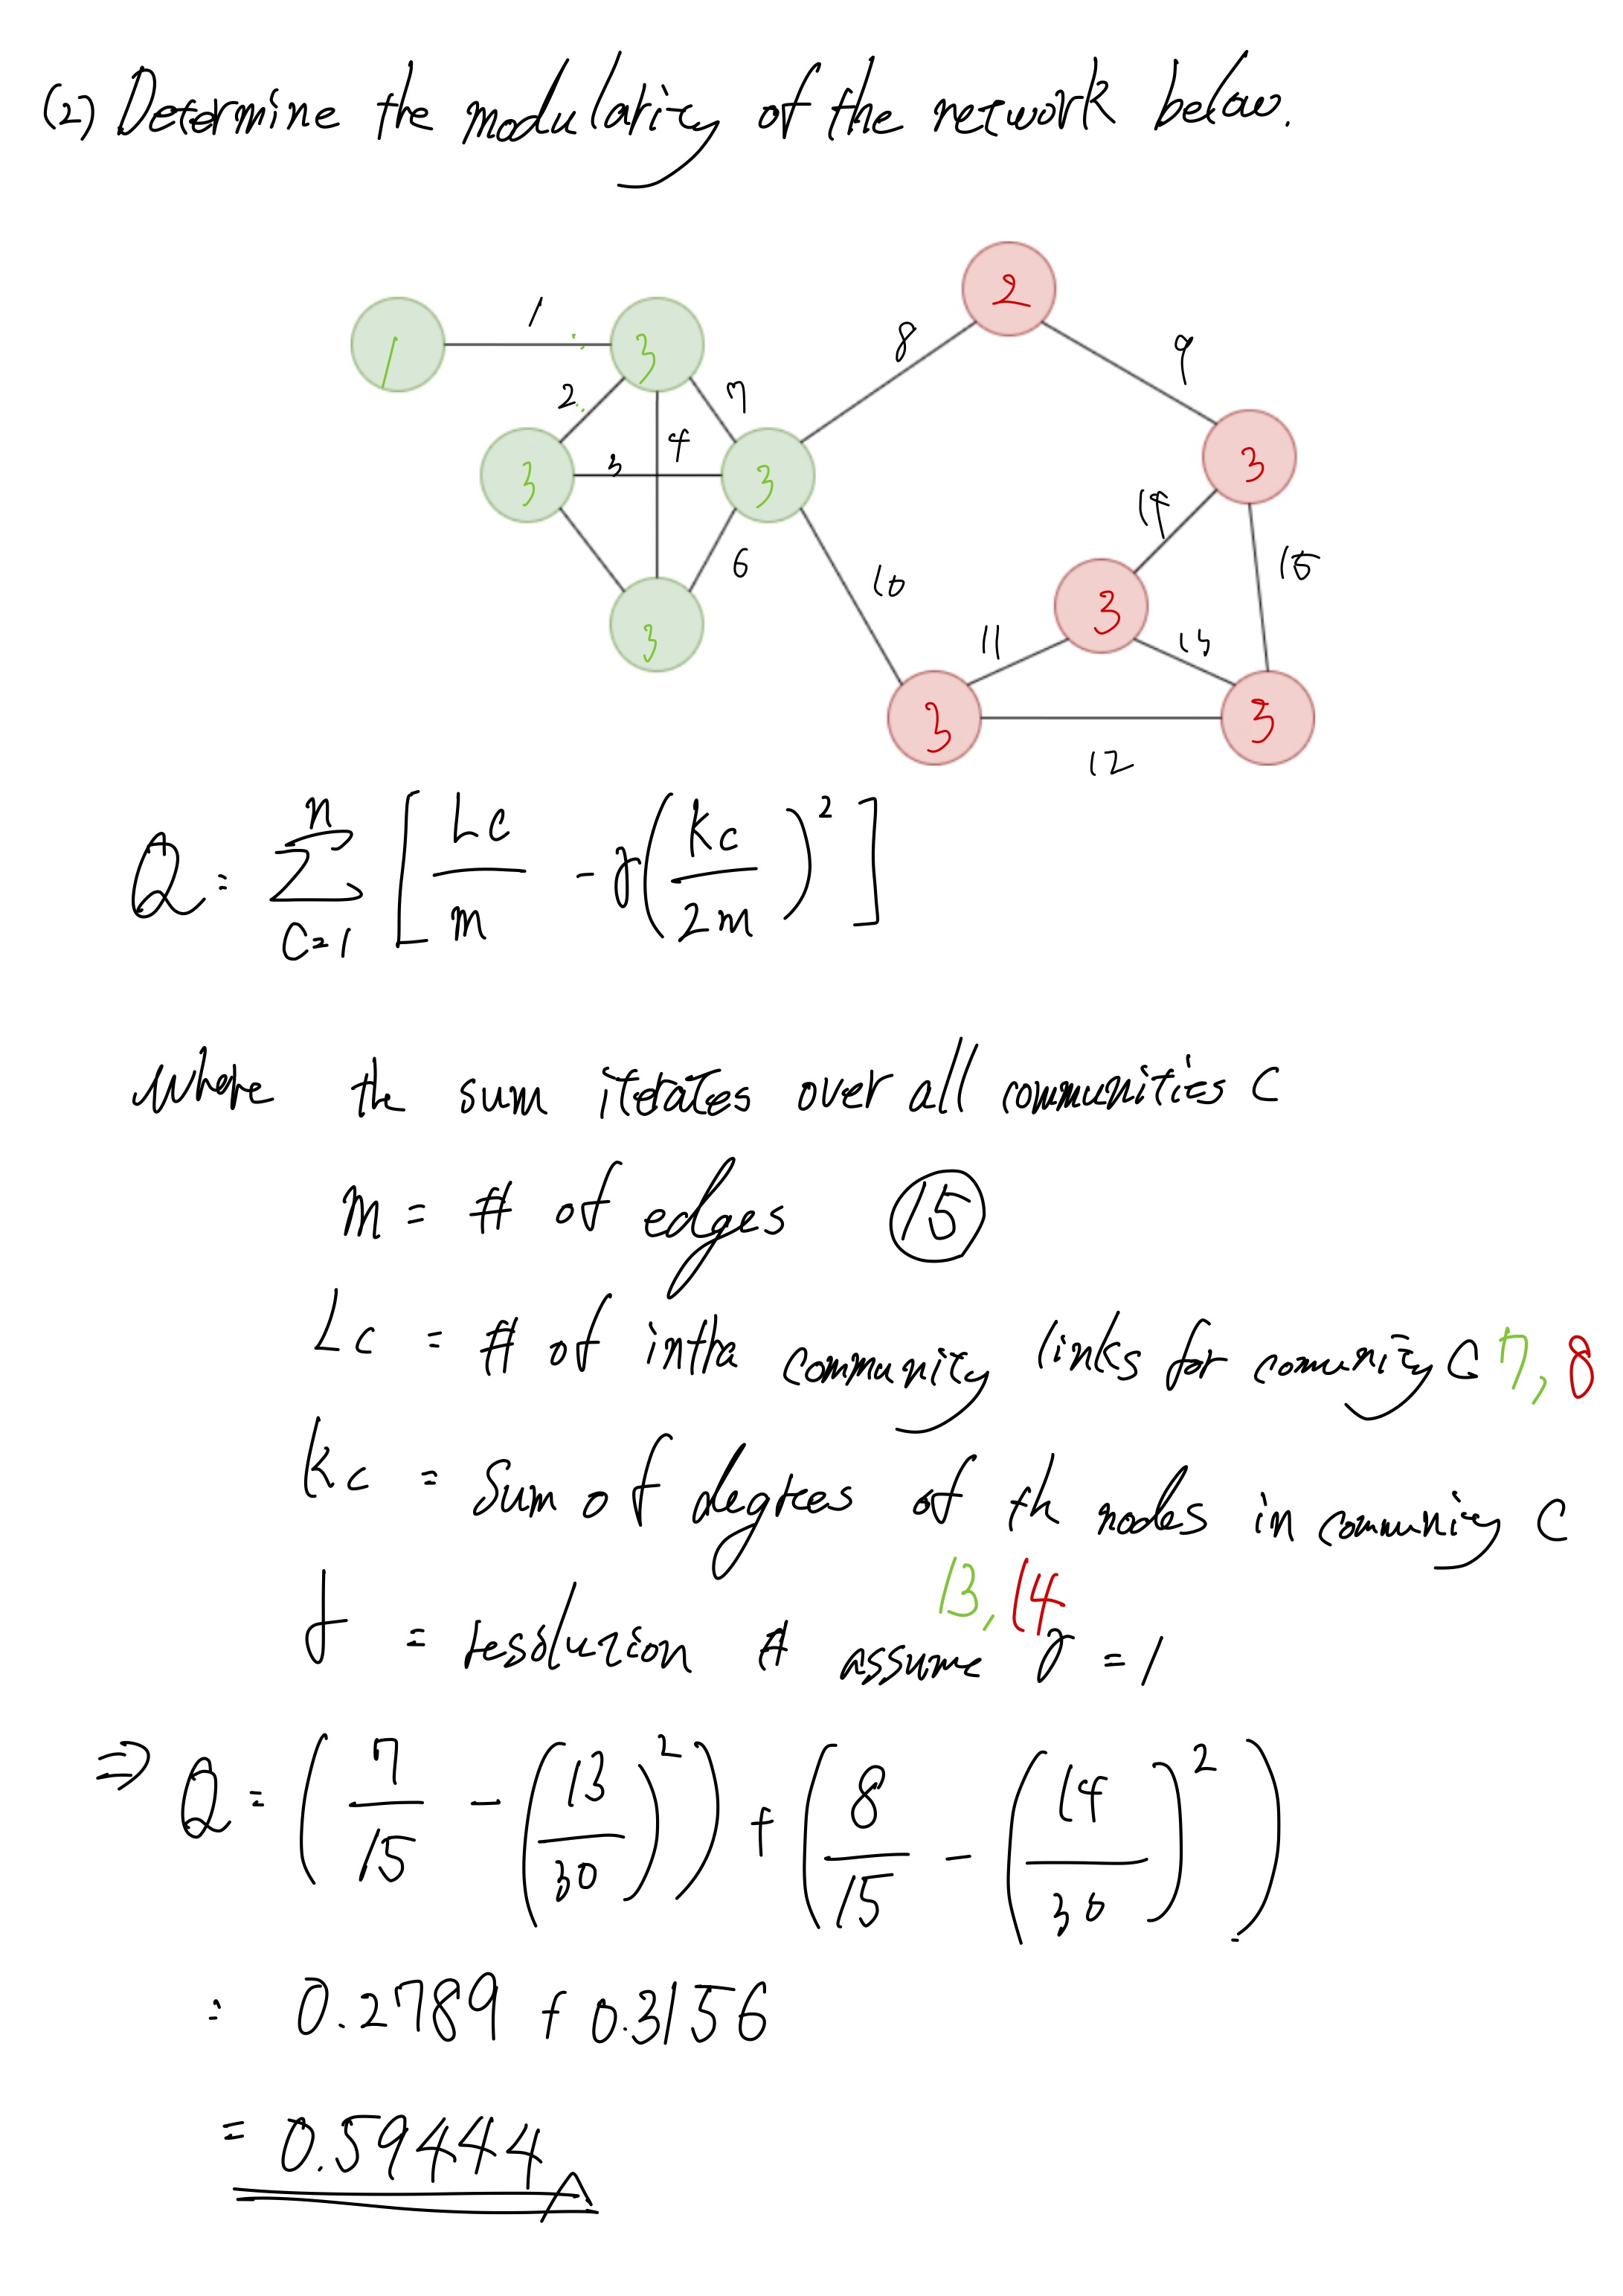 (2) Determine the modularity of the network below.
1
2
1
3
8
9
2
7
3
4
3
3
3
14
6
15
10
3
3
11
13
3
3
12
Q = n∑c=1 [ Lc/m - γ(Kc/2m)² ]
where the sum iterates over all communities C
m = # of edges 15
Lc = # of intra community links for comunity C 7, 8
Kc = Sum of degrees of th nodes in communiy C
13, 14
γ = resolution # assume γ = 1
⇒ Q = ( 7/15 - (13/30)² ) + ( 8/15 - (14/30)² )
= 0.2789 + 0.3156
= 0.59444